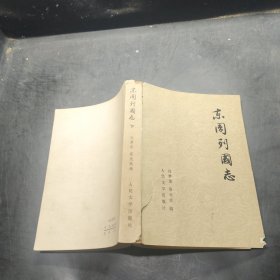 东周列國志
冯梦龙 蔡元放 编
人民文学出版社
东周列國志 下
冯梦龙 蔡元放编
人民文学出版社